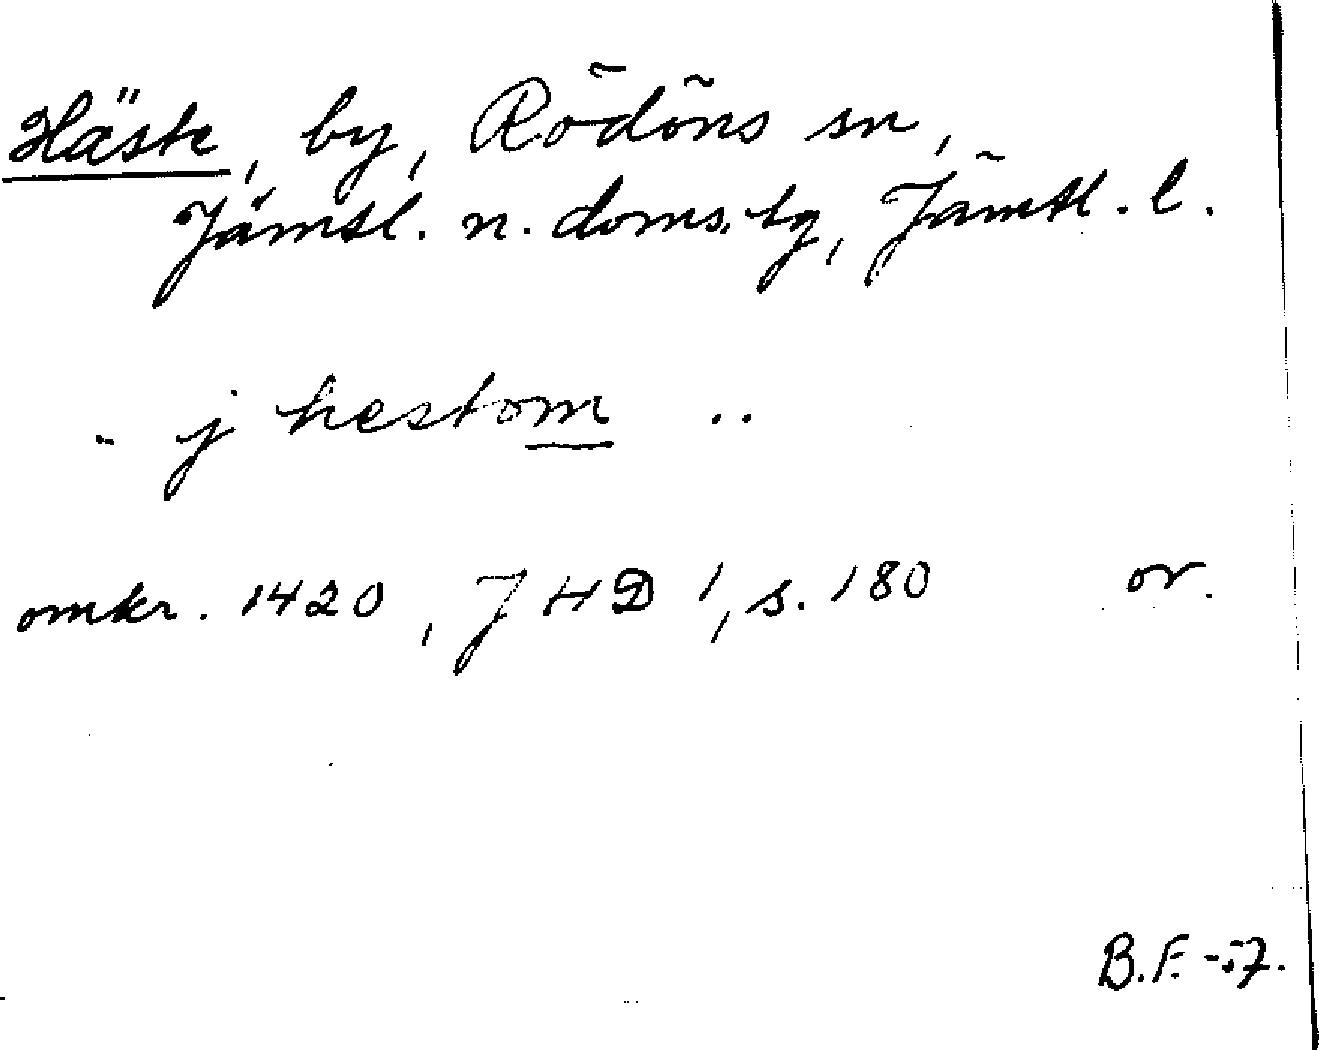 Häste, by, Rödöns sn,
Jämtl. n. doms. tg, Jämtl. l.
.. j hestom ..
omkr. 1420, JHD 1, s. 180 or.
B.F. -57.